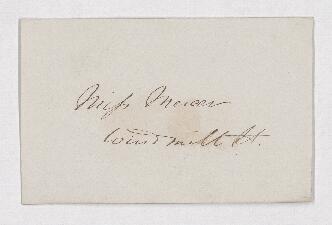 Miss Meion
Windmill St.